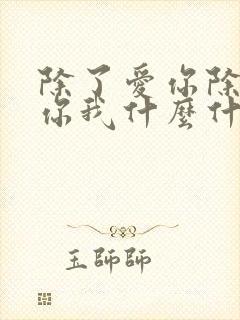 除了愛你除
你我什麼什
玉師師